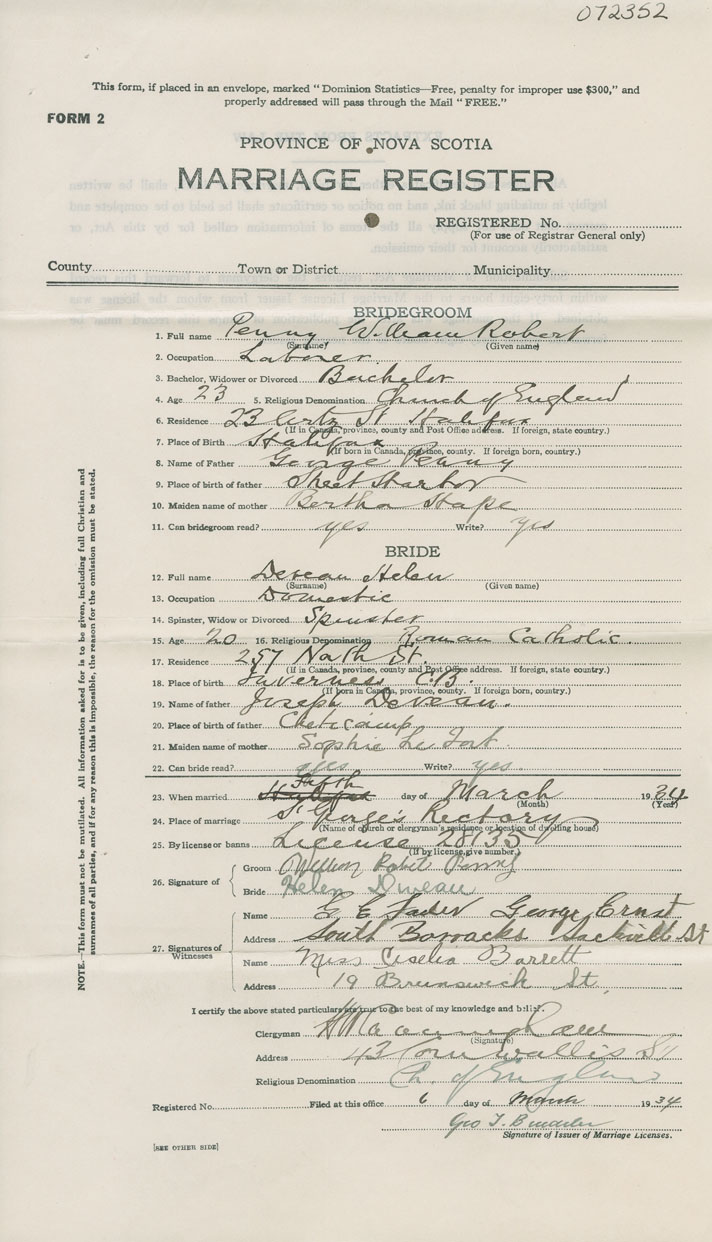 072352
This form, if placed in an envelope, marked "Dominion Statistics—Free, penalty for improper use $300," and
properly addressed will pass through the Mail "FREE."
FORM 2
PROVINCE OF NOVA SCOTIA
MARRIAGE REGISTER
REGISTERED No.
(For use of Registrar General only)
County Town or District Municipality
BRIDEGROOM
1. Full name Penny William Robert
(Surname) (Given name)
2. Occupation Laborer
3. Bachelor, Widower or Divorced Bachelor
4. Age 23 5. Religious Denomination Church of England
6. Residence 23 Artz St Halifax
(If in Canada, province, county and Post Office address. If foreign, state country.)
7. Place of Birth Halifax
(If born in Canada, province, county. If foreign born, country.)
8. Name of Father George Penny
9. Place of birth of father Sheet Harbor
10. Maiden name of mother Bertha Hape
11. Can bridegroom read? yes Write? yes
BRIDE
12. Full name Deveau Helen
(Surname) (Given name)
13. Occupation Domestic
14. Spinster, Widow or Divorced Spinster
15. Age 20 16. Religious Denomination Roman Catholic.
17. Residence 257 North St.
(If in Canada, province, county and Post Office address. If foreign, state country.)
18. Place of birth Inverness C.B.
(If born in Canada, province, county. If foreign born, country.)
19. Name of father Joseph Deveau.
20. Place of birth of father Cheticamp
21. Maiden name of mother Sophie Le Fort.
22. Can bride read? yes Write? yes.
Fifth
23. When married Halifax day of March 1934
(Month) (Year)
24. Place of marriage St George's Rectory
(Name of church or clergyman's residence or location of dwelling house)
25. By license or banns License 28135
(If by license, give number.)
26. Signature of
Groom William Robert Penny
Bride Helen Deveau
27. Signatures of Witnesses
Name E E George Ernst
Address South Barracks Sackville St
Name Miss Ciselia Barrett
Address 19 Brunswick St.
I certify the above stated particulars are true to the best of my knowledge and belief.
Clergyman
(Signature)
Address 43 Cornwallis St
Religious Denomination Ch. of England
Registered No. Filed at this office 6 day of March 1934
Geo T.
Signature of Issuer of Marriage Licenses.
[SEE OTHER SIDE]
NOTE.—This form must not be mutilated. All information asked for is to be given, including full Christian and
surnames of all parties, and if for any reason this is impossible, the reason for the omission must be stated.